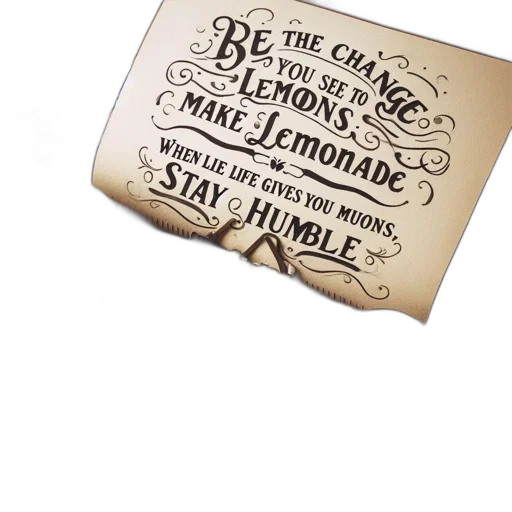 BE THE CHANGE
YOU SEE TO
LEMONS.
MAKE LEMONADE
WHEN LIE LIFE GIVES YOU MUONS,
STAY HUMBLE